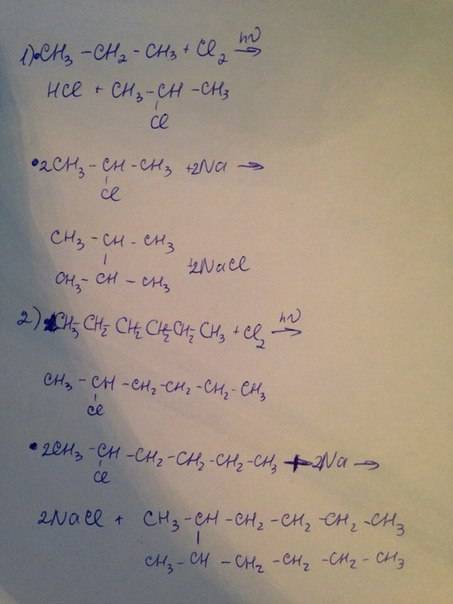 1) CH₃ - CH₂ - CH₃ + Cl₂ hν →
HCl + CH₃ - CH - CH₃
Cl
• 2CH₃ - CH - CH₃ + 2Na →
Cl
CH₃ - CH - CH₃
CH₃ - CH - CH₃ + 2NaCl
2) CH₃ - CH₂ - CH₂ - CH₂ - CH₂ - CH₃ + Cl₂ hν →
CH₃ - CH - CH₂ - CH₂ - CH₂ - CH₃
Cl
• 2CH₃ - CH - CH₂ - CH₂ - CH₂ - CH₃ + 2Na →
Cl
2NaCl + CH₃ - CH - CH₂ - CH₂ - CH₂ - CH₃
CH₃ - CH - CH₂ - CH₂ - CH₂ - CH₃